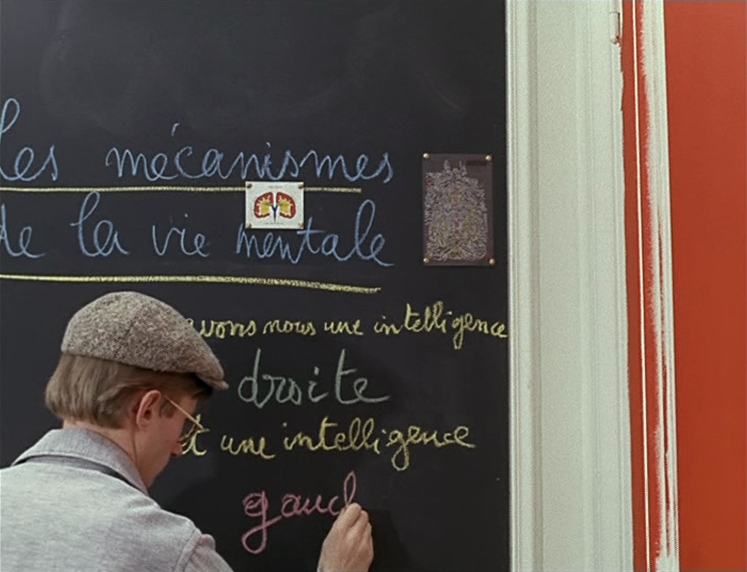 Les mécanismes
de la vie mentale
avons nous une intelligence
droite
et une intelligence
gauch